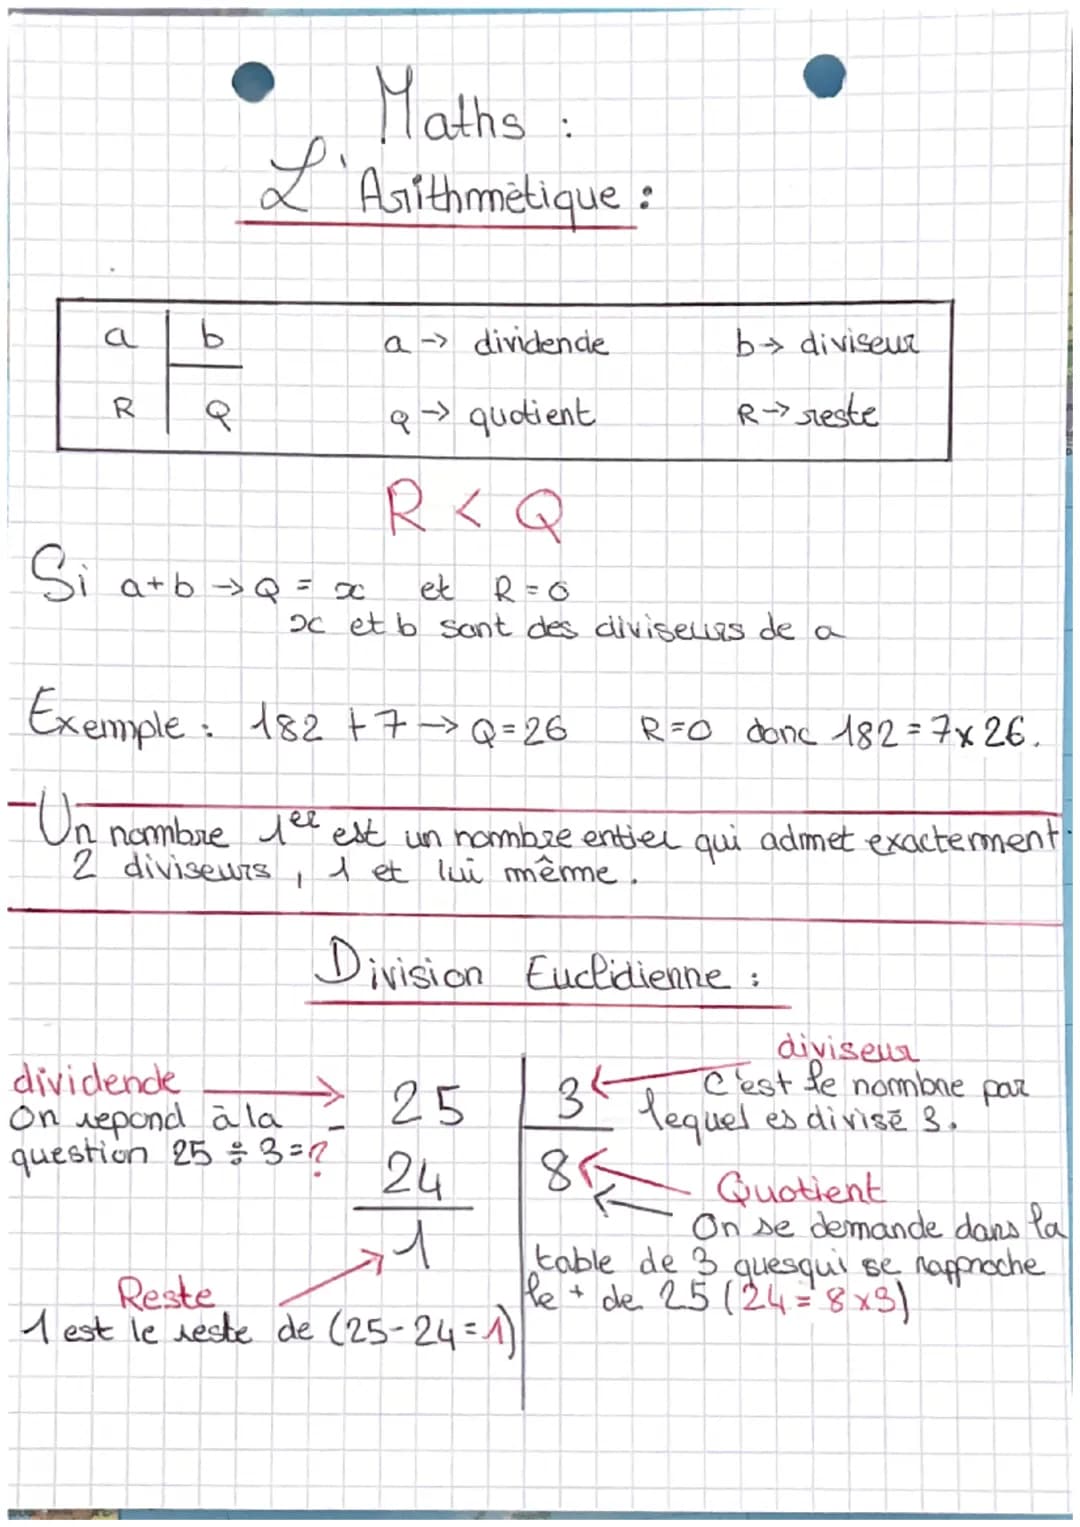 Maths :
L'Arithmétique :
a b a → dividende b → diviseur
R Q q → quotient R → reste
R < Q
Si a+b → Q = x et R = 0
x et b sont des diviseurs de a
Exemple : 182 + 7 → Q = 26 R=0 donc 182 = 7 x 26.
Un nombre 1er est un nombre entier qui admet exactement
2 diviseurs, 1 et lui même.
Division Euclidienne :
dividende
On repond à la
question 25 ÷ 3 = ?
- 25
24
1
Reste
1 est le reste de (25-24=1)
3
8
diviseur
C'est le nombre par
lequel es divisé 3.
Quotient
On se demande dans la
table de 3 quesqui se rapproche
le + de 25 (24 = 8 x 3)